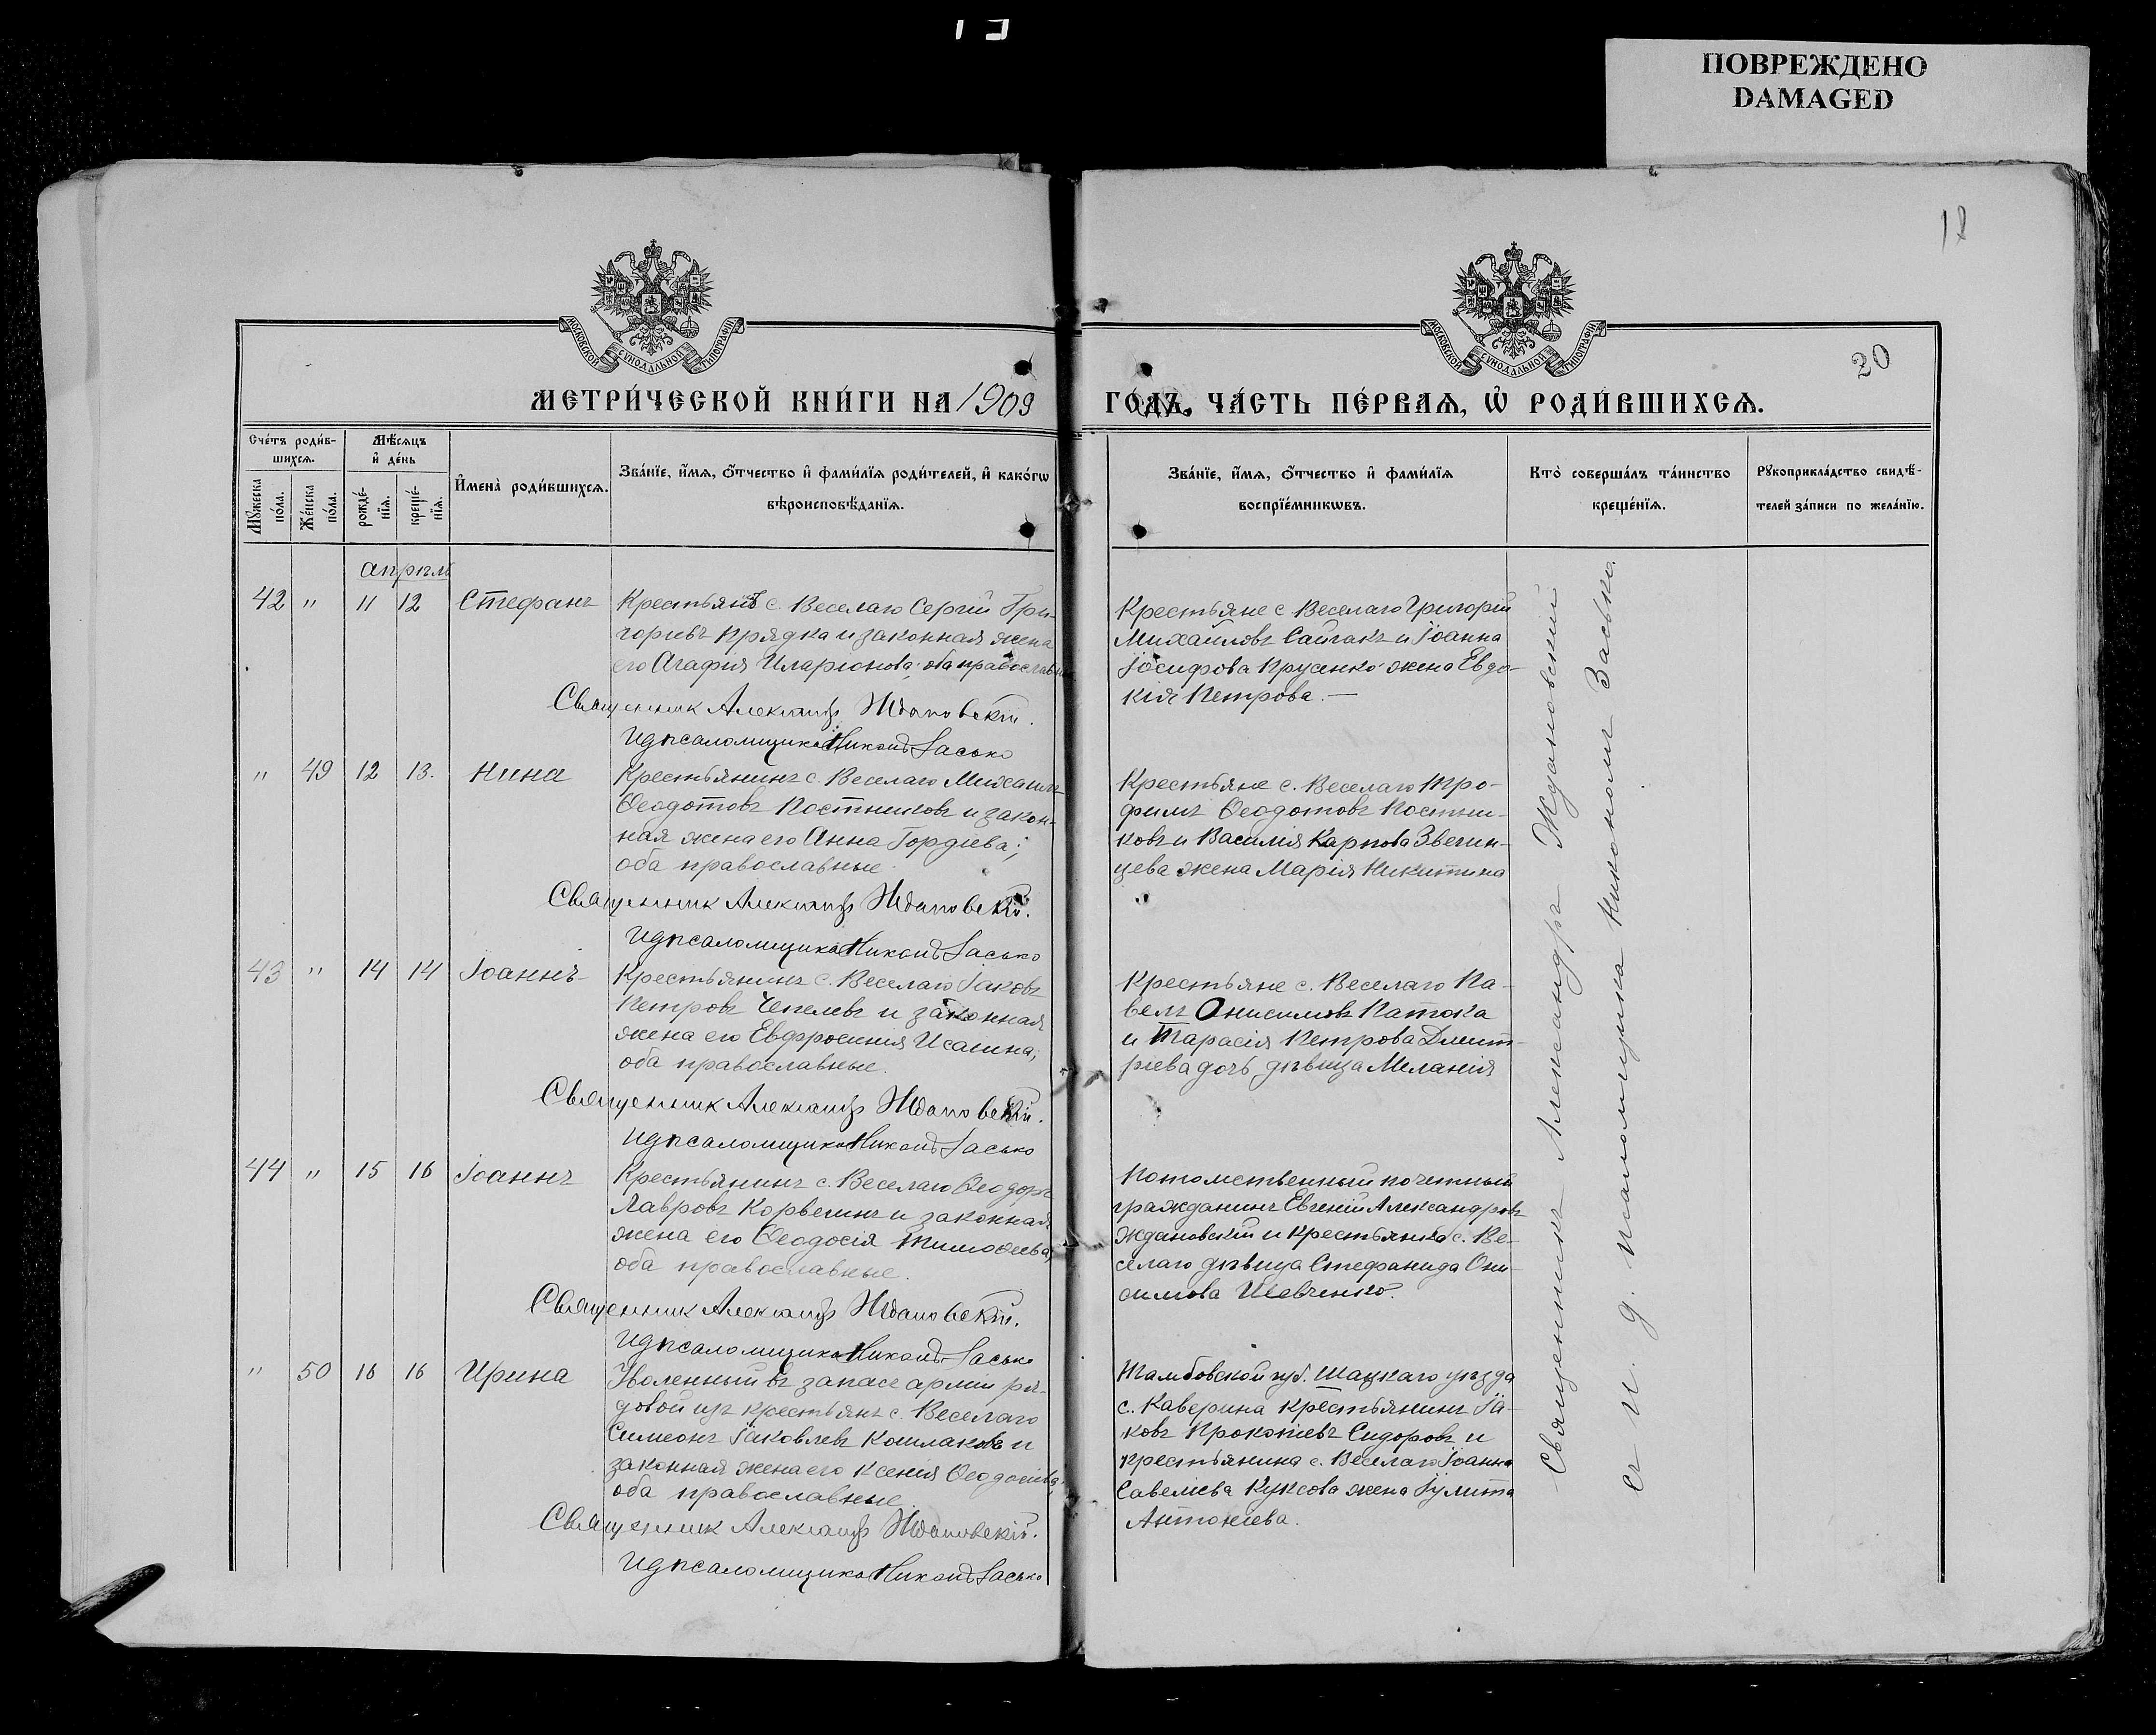 ПОВРЕЖДЕНО
DAMAGED
18
20
МОСКОВСКОЙ СУНОДАЛЬНОЙ ТИПОГРАФІИ
МОСКОВСКОЙ СУНОДАЛЬНОЙ ТИПОГРАФІИ
МЕТРИ́ЧЕСКОЙ КНИ́ГИ НА 1909
ГОДЪ, ЧА́СТЬ ПЕ́РВАѦ, Ѡ҆ РОДИ́ВШИХСѦ.
Сче́тъ роди́в-
шихсѧ.
Мꙋ́жеска по́ла.
Же́нска по́ла.
Мѣ́сѧцъ
и҆ де́нь
рожде́-
нїѧ.
креще́-
нїѧ.
И҆мена̀ роди́вшихсѧ.
Зва́нїе, и҆́мѧ, ѻ҆́тчество и҆ фами́лїѧ роди́телей, и҆ како́гѡ
вѣроисповѣ́данїѧ.
Зва́нїе, и҆́мѧ, ѻ҆́тчество и҆ фами́лїѧ
воспрїе́мникѡвъ.
Кто̀ соверша́лъ та́инство
креще́нїѧ.
Рꙋкоприкла́дство свидѣ́-
телей за́писи по жела́нїю.
апрѣль
42 " 11 12 Стефанъ
Крестьянъ с. Веселаго Сергій Гри-
горьевъ Прядка и законная жена
его Агафия Иларіонова; оба православные
Священник Александръ Ждановскій.
И д псаломщика Никонъ Засько
Крестьяне с Веселаго Григорій
Михайловъ Сайгакъ и Іоанна
Іосифова Прусенко жена Евдо-
кія Петрова. —
" 49 12 13. Нина
Крестьянинъ с. Веселаго Михаилъ
Ѳеодотовъ Постниковъ и закон-
ная жена его Анна Гордіева;
оба православные
Священник Александръ Ждановскій.
И д псаломщика Никонъ Засько
Крестьяне с. Веселаго Тро-
фимъ Ѳеодотовъ Постни-
ковъ и Василія Карпова Звегин-
цева жена Марія Никитина
43 " 14 14 Іоаннъ
Крестьянинъ с. Веселаго Іаковъ
Петровъ Чепелевъ и законная
жена его Евфросиния Исаина;
оба православные.
Священник Александръ Ждановскій.
И д псаломщика Никонъ Засько
Крестьяне с. Веселаго Па-
велъ Онисимовъ Патока
и Тарасія Петрова Дмит-
ріева дочь дѣвица Меланія
44 " 15 16 Іоаннъ
Крестьянинъ с. Веселаго Ѳеодоръ
Лавровъ Корвегинъ и законная
жена его Ѳеодосія Тимоѳеева,
оба православные.
Священник Александръ Ждановскій.
И д псаломщика Никонъ Засько
Потомственный почетный
гражданинъ Евгений Александровъ
Ждановскій и крестьянка с. Ве-
селаго дѣвица Стефанида Они-
симова Шевченко.
" 50 16 16 Ирина
Уволенный въ запасъ арміи ря-
довой изъ крестьянъ с. Веселаго
Симеонъ Іаковлевъ Кошлаковъ и
законная жена его Ксенія Ѳеодосіева,
оба православные.
Священник Александръ Ждановскій.
И д псаломщика Никонъ Засько
Тамбовской губ. Шацкаго уѣзда
с. Каверина крестьянинъ Іа-
ковъ Прокопіевъ Сидоровъ и
крестьянина с. Веселаго Іоанна
Савеліева Куксова жена Іулитта
Антоніева.
Священникъ Александръ Ждановскій
съ и. д. псаломщика Никономъ Засько.